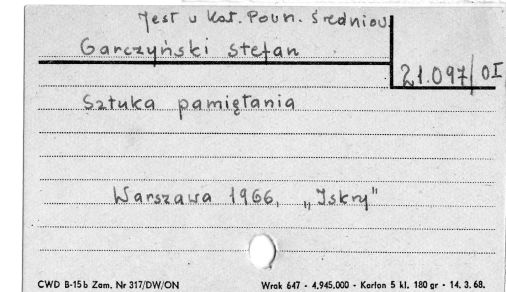 Jest u Kat. Pown. Średniow.
Garczyński Stefan
21.097/OI
Sztuka pamiętania
Warszawa 1966, „Iskry”
CWD B-15b Zam. Nr 317/DW/ON Wrak 647 - 4.945.000 - Karton 5 kl. 180 gr - 14. 3. 68.